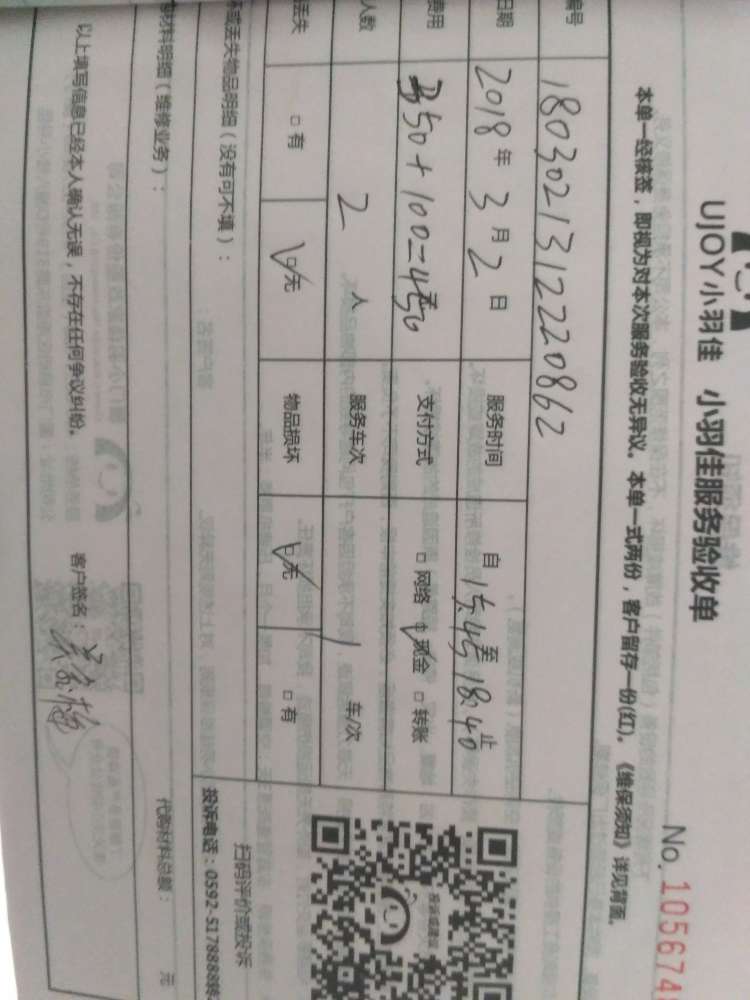 UJOY小羽佳 小羽佳服务验收单
No. 105674
本单一经核签，即视为对本次服务验收无异议。本单一式两份，客户留存一份(红)。《维保须知》详见背面。
编号 1803021312220862
日期 2018年3月2日 服务时间 自15:45至18:40止
费用 350+100=450 支付方式 □网络 ☑现金 □转账
人数 2人 服务车次 1 车/次
丢失 □有 ☑无 物品损坏 ☑无 □有
坏或丢失物品明细（没有可不填）：
扫码评价或投诉
投诉电话：0592-5178888转
材料明细（维修业务）：
代购材料总额： 元
以上填写信息已经本人确认无误，不存在任何争议纠纷。 客户签名：